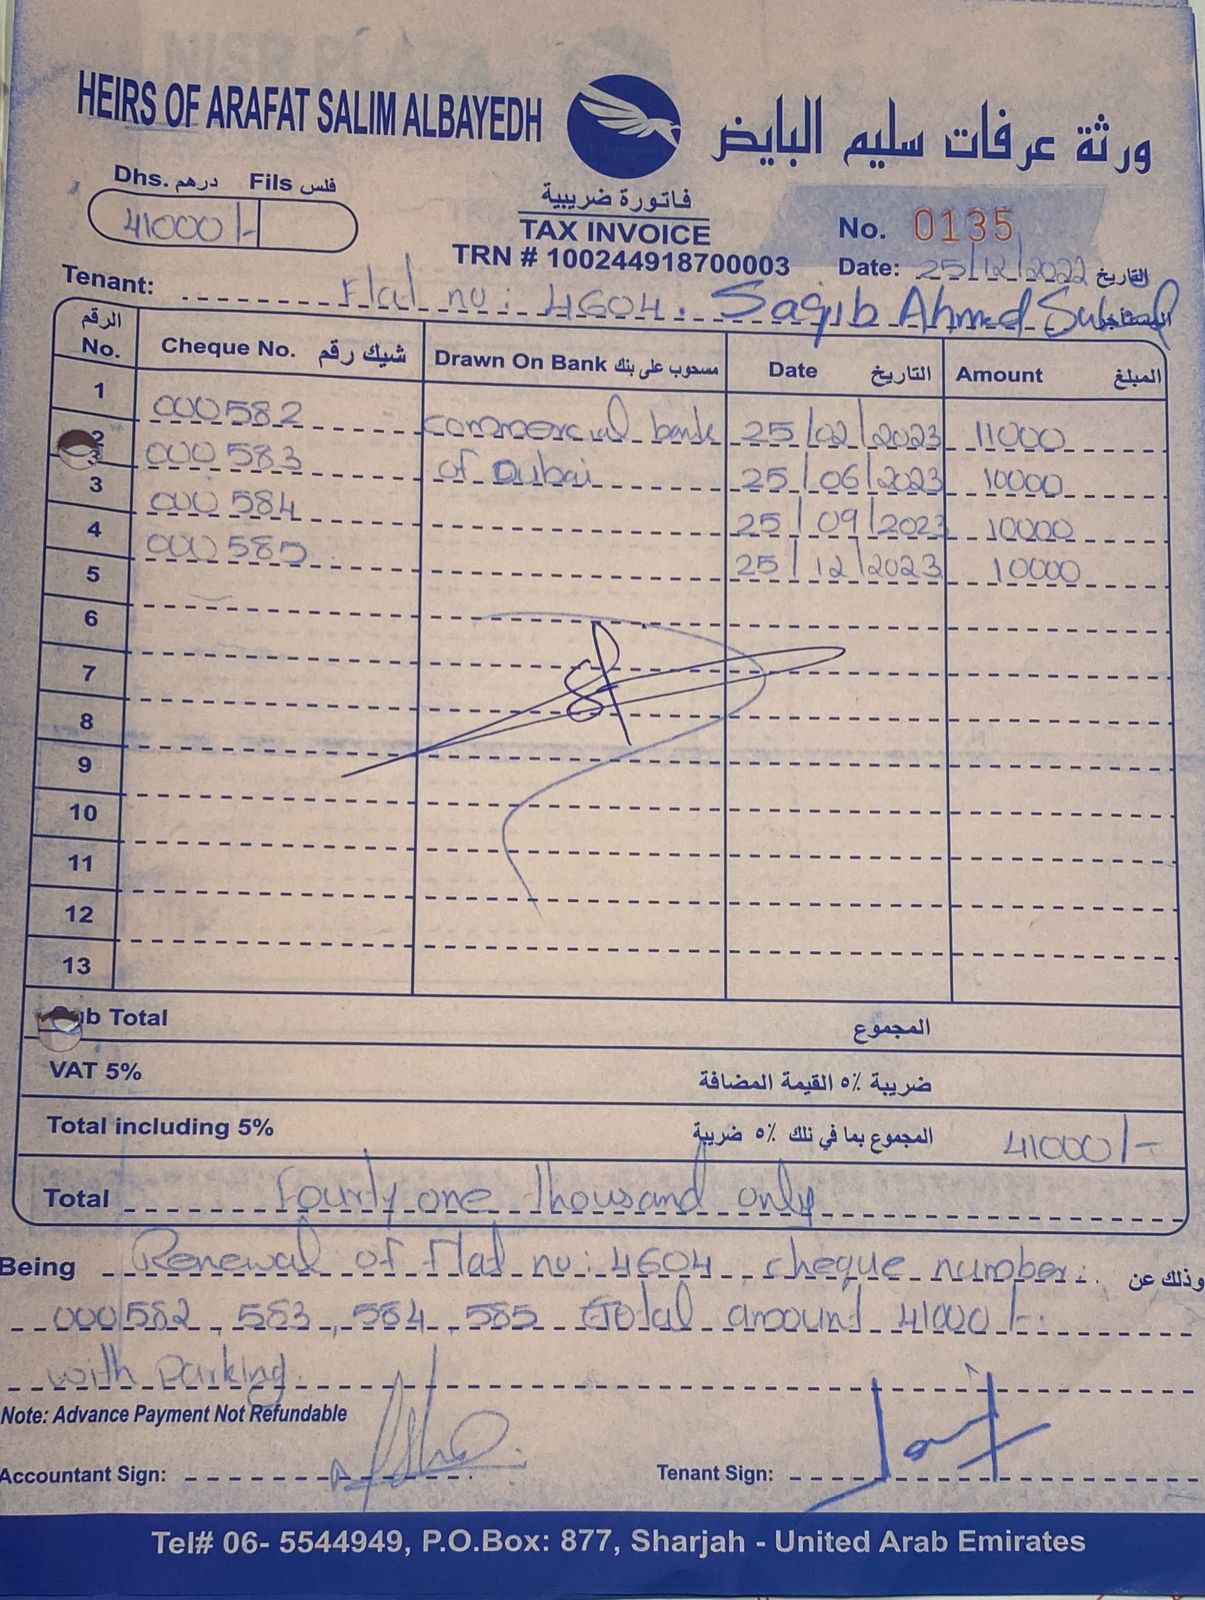 HEIRS OF ARAFAT SALIM ALBAYEDH
ورثة عرفات سليم البايض
Dhs. درهم Fils فلس
41000/-
فاتورة ضريبية
TAX INVOICE
TRN # 100244918700003
No. 0135
Date: 25/12/2022 التاريخ
Tenant: Flat no: 4604. Saqib Ahmed
الرقم No. Cheque No. شيك رقم Drawn On Bank مسحوب على بنك Date التاريخ Amount المبلغ
1 000582 commercial bank 25/02/2023 11000
2 000583 of Dubai 25/06/2023 10000
3 000584 25/09/2023 10000
4 000585 25/12/2023 10000
5
6
7
8
9
10
11
12
13
Sub Total المجموع
VAT 5% ضريبة ٥٪ القيمة المضافة
Total including 5% المجموع بما في ذلك ٥٪ ضريبة 41000/-
Total Fourty one thousand only
Being Renewal of Flat no: 4604 cheque number: وذلك عن
000582, 583, 584, 585 total amount 41000/-
with parking.
Note: Advance Payment Not Refundable
Accountant Sign: Tenant Sign:
Tel# 06- 5544949, P.O.Box: 877, Sharjah - United Arab Emirates